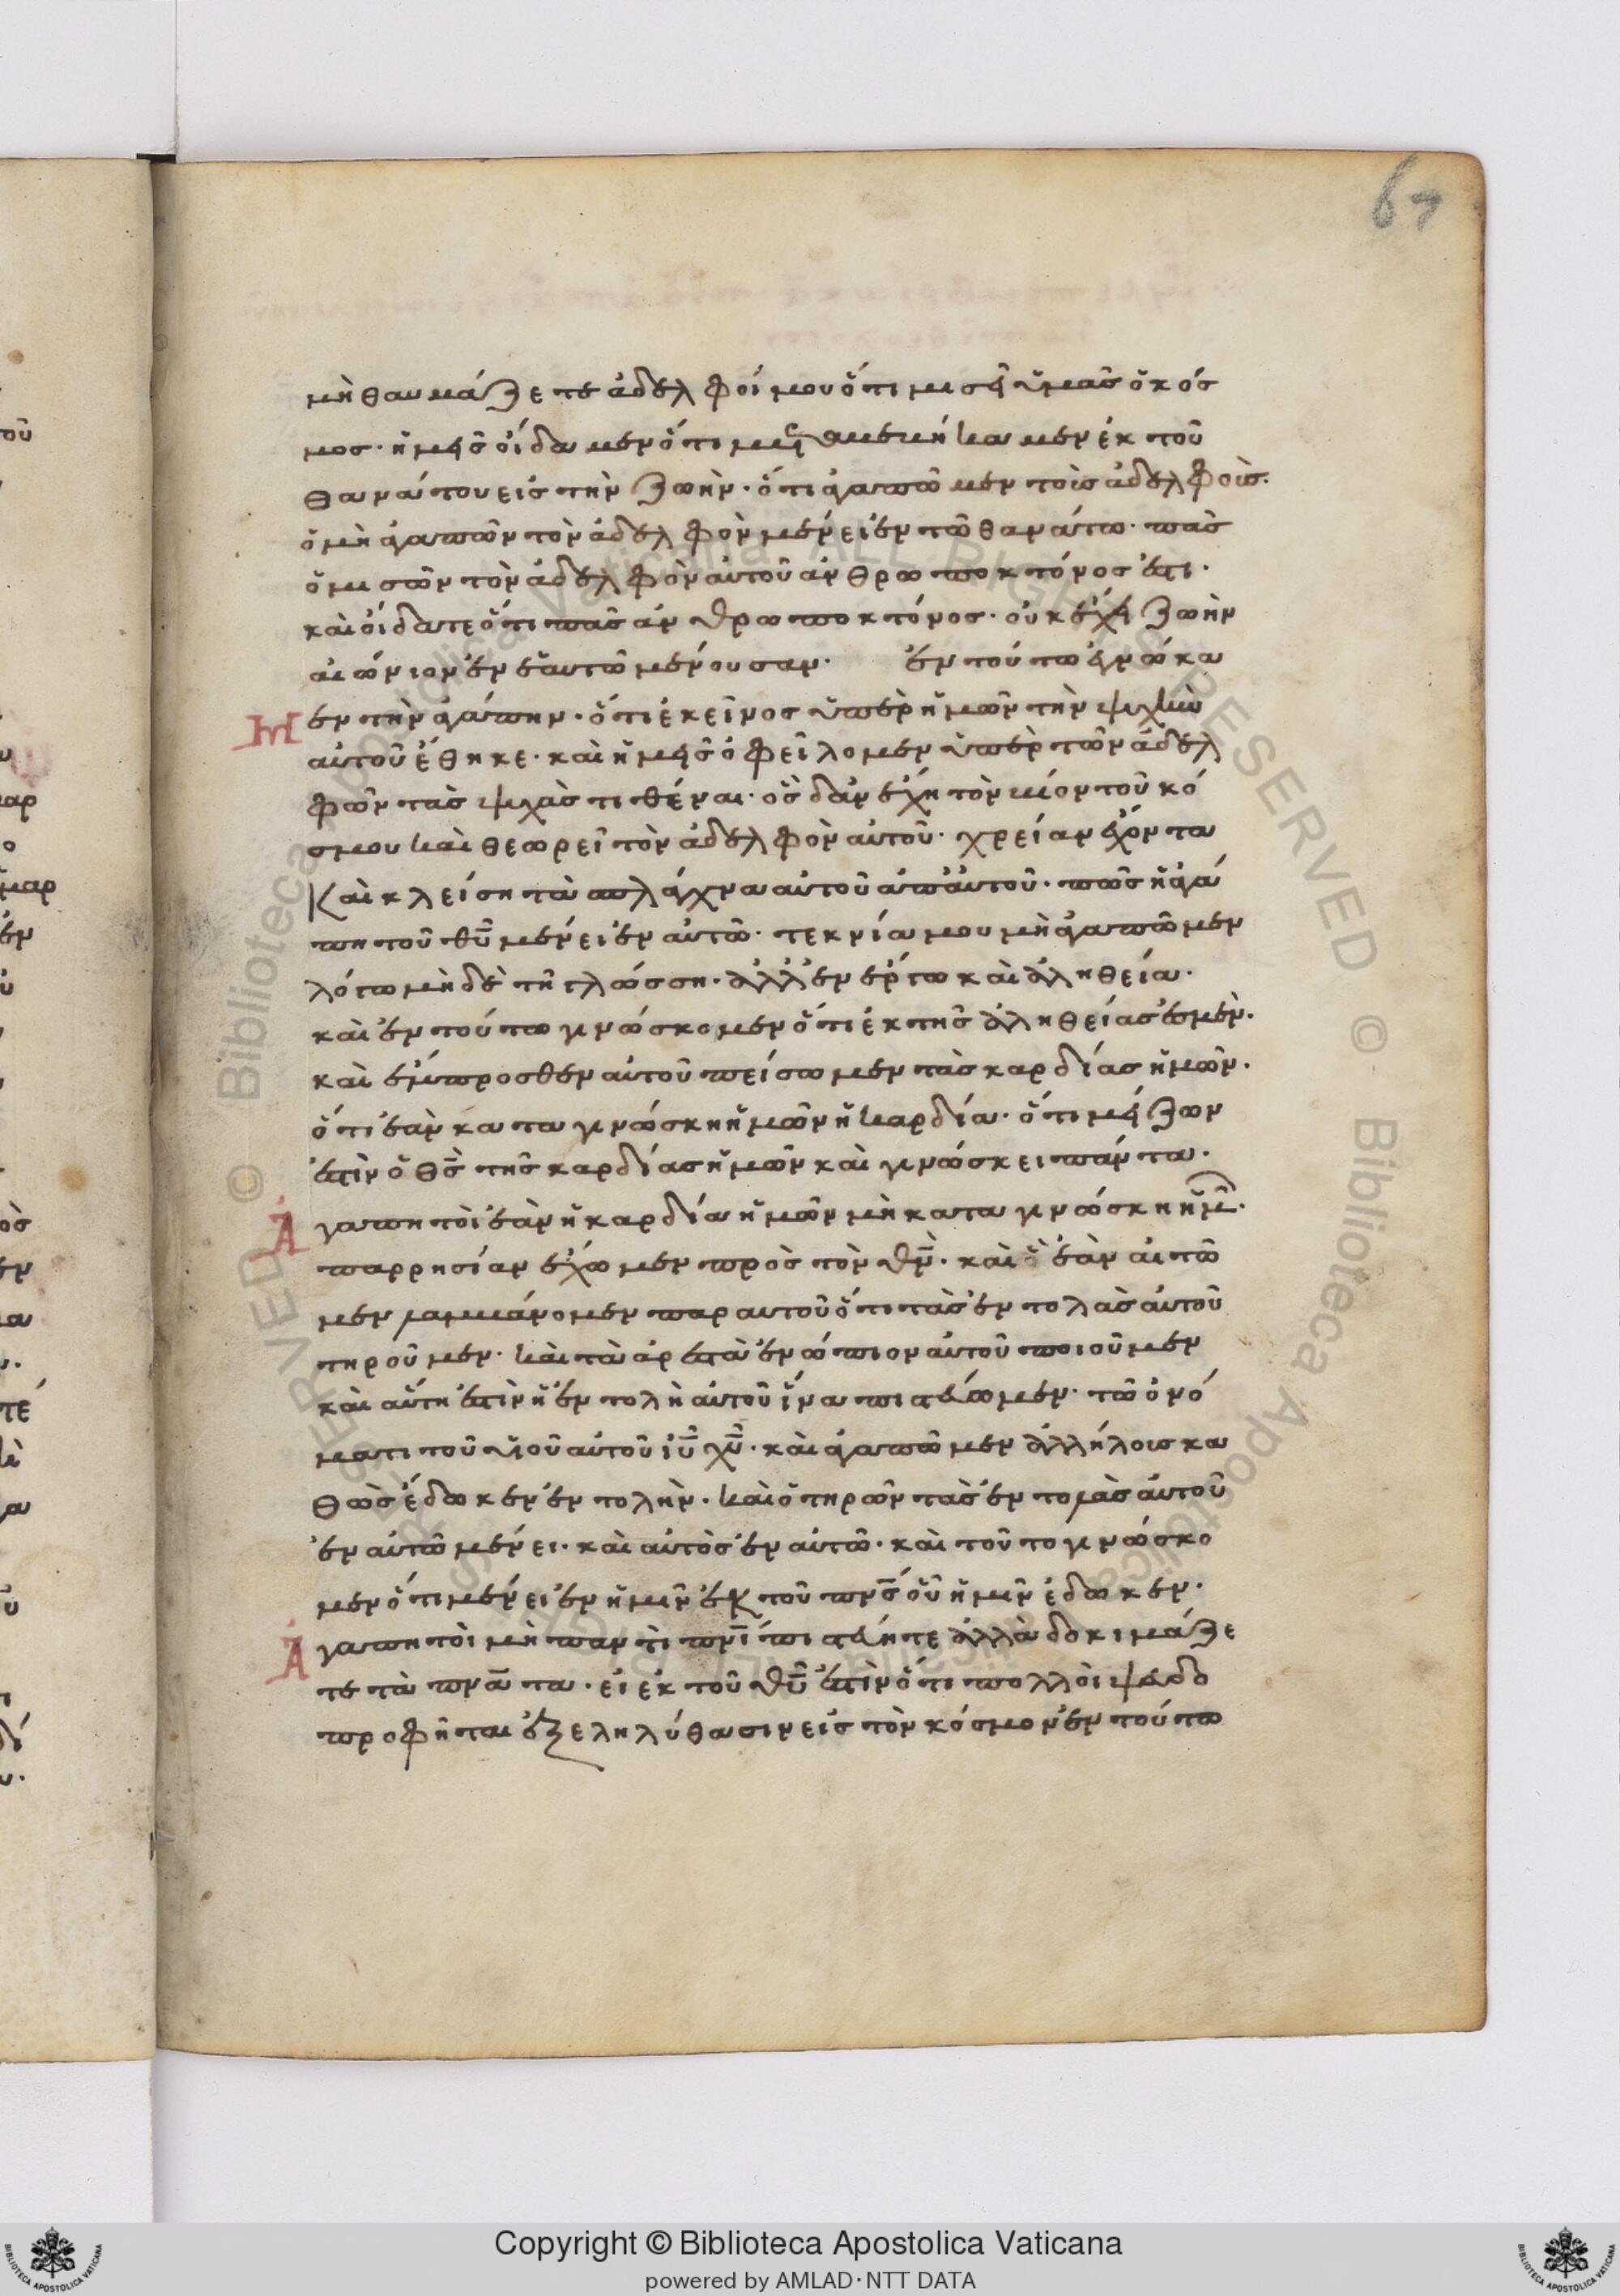 67
μὴ θαυμάζετε ἀδελφοί μου ὅτι μισεῖ ὑμᾶς ὁ κόσ
μος· ἡμεῖς οἴδαμεν ὅτι μεταβεβήκαμεν ἐκ τοῦ
θανάτου εἰς τὴν ζωὴν· ὅτι ἀγαπῶμεν τοὺς ἀδελφοὺς·
ὁ μὴ ἀγαπῶν τὸν ἀδελφὸν μένει ἐν τῶ θανάτω· πᾶς
ὁ μισῶν τὸν ἀδελφὸν αὐτοῦ ἀνθρωποκτόνος ἐστι·
καὶ οἴδατε ὅτι πᾶς ἀνθρωποκτόνος· οὐκ ἔχει ζωὴν
αἰώνιον ἐν ἑαυτῶ μένουσαν· ἐν τούτω ἐγνώκα
μεν τὴν ἀγάπην· ὅτι ἐκεῖνος ὑπὲρ ἡμῶν τὴν ψυχὴν
αὐτοῦ ἔθηκε· καὶ ἡμεῖς ὀφείλομεν ὑπὲρ τῶν ἀδελ
φῶν τὰς ψυχὰς τιθέναι· ὃς δ᾽ἂν ἔχη τὸν βίον τοῦ κό
σμου καὶ θεωρεῖ τὸν ἀδελφὸν αὐτοῦ· χρείαν ἔχοντα
Καὶ κλείση τὰ σπλάγχνα αὐτοῦ ἀπ᾽αὐτοῦ· πῶς ἡ ἀγά
πη τοῦ θυ μένει ἐν αὐτῶ· τεκνία μου μὴ ἀγαπῶμεν
λόγω μὴ δὲ τῆ γλώσση· ἀλλ᾽ἐν ἔργω καὶ ἀληθεία·
καὶ ἐν τούτω γινώσκομεν ὅτι ἐκ τῆς ἀληθείας ἐσμὲν·
καὶ ἔμπροσθεν αὐτοῦ πείσωμεν τὰς καρδίας ἡμῶν·
ὅτι ἐὰν καταγινώσκη ἡμῶν ἡ καρδία· ὅτι μείζων
ἐστὶν ὁ θς τῆς καρδίας ἡμῶν καὶ γινώσκει πάντα·
Ἀγαπητοὶ ἐὰν ἡ καρδία ἡμῶν μὴ καταγινώσκη ἡμῶ·
παρρησίαν ἔχωμεν πρὸς τὸν θν· καὶ ὃ ἐὰν αἰτῶ
μεν λαμβάνομεν παρ αυτοῦ ὅτι τὰς ἐντολὰς αὐτοῦ
τηροῦμεν· καὶ τὰ ἀρεστὰ ἐνώπιον αὐτοῦ ποιοῦμεν
καὶ αὕτη ἐστὶν ἡ ἐντολὴ αὐτοῦ ἵνα πιστεύωμεν· τῶ ὀνό
ματι τοῦ υἱοῦ αὐτοῦ ἰυ χυ· καὶ ἀγαπῶμεν ἀλλήλους κα
θὼς ἔδωκεν ἐντολὴν· καὶ ὁ τηρῶν τὰς ἐντολὰς αὐτοῦ
ἐν αὐτῶ μένει· καὶ αὐτὸς ἐν αὐτῶ· καὶ τοῦτο γινώσκο
μεν ὅτι μένει ἐν ἡμῖν ἐκ τοῦ πνς οὗ ἡμῖν ἔδωκεν·
Ἀγαπητοὶ μὴ παντὶ πνι πιστεύητε ἀλλὰ δοκιμάζε
τε τὰ πνατα· εἰ ἐκ τοῦ θυ ἐστὶν ὅτι πολλοὶ ψευδο
προφῆται ἐξεληλύθασιν εἰς τὸν κόσμον ἐν τούτω
Copyright © Biblioteca Apostolica Vaticana
powered by AMLAD·NTT DATA